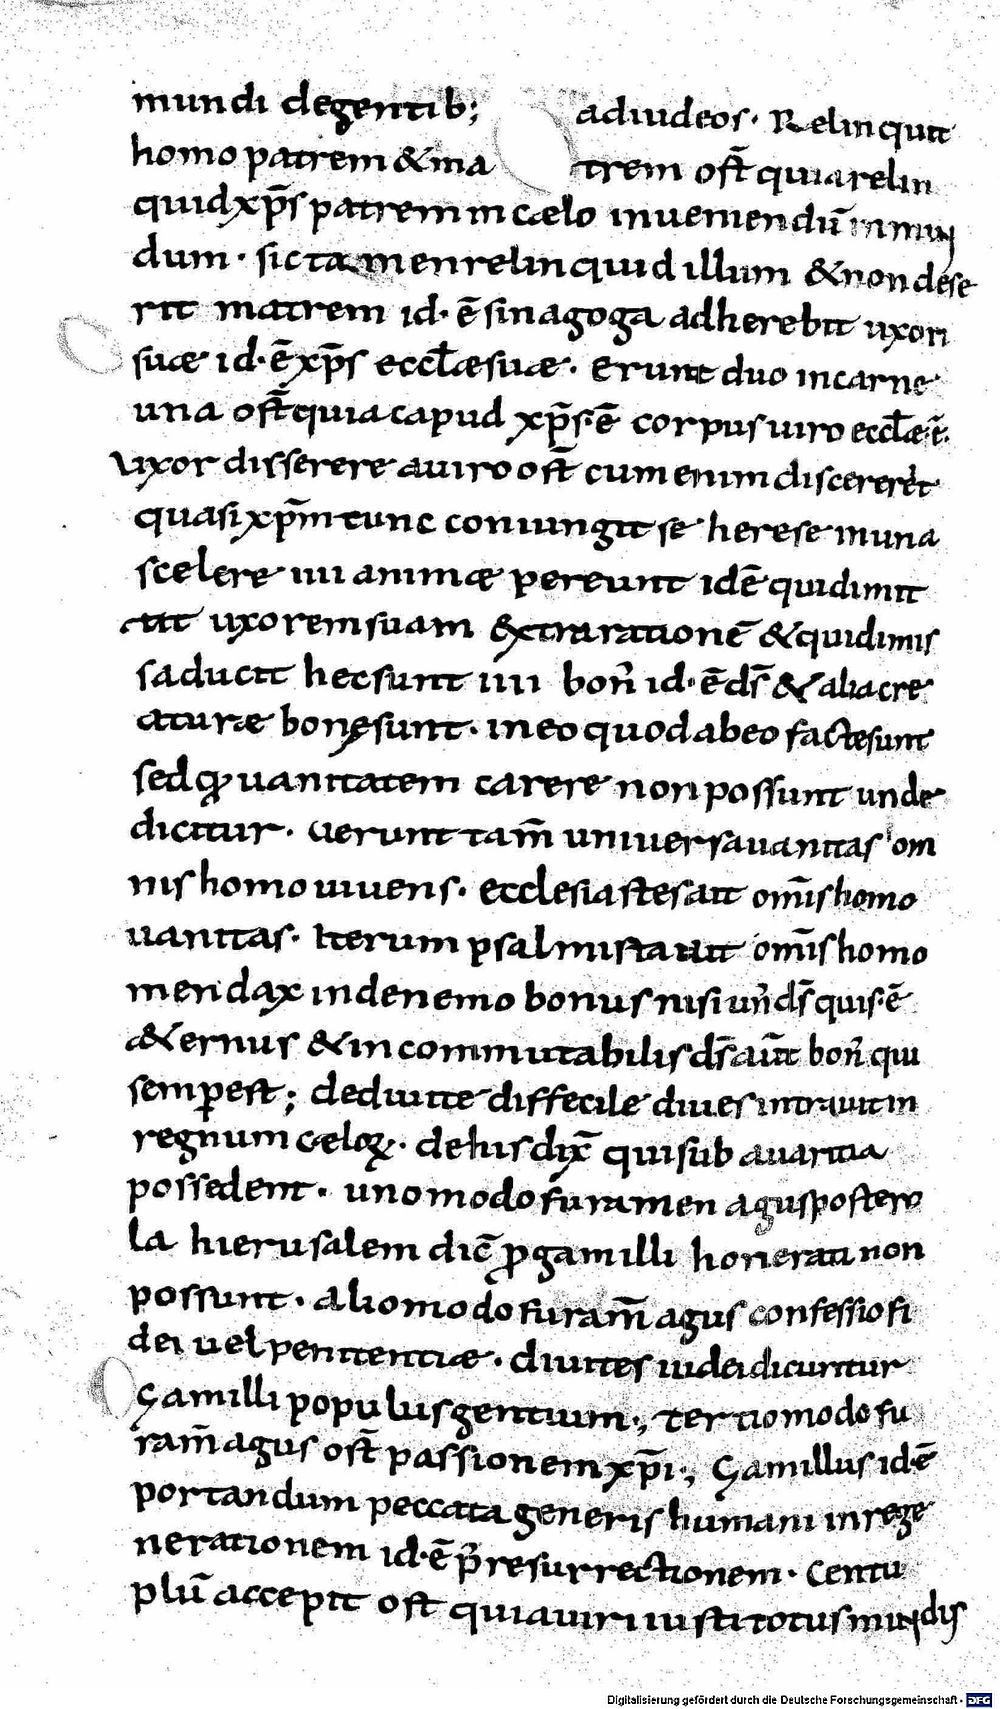 mundi degentib; adiudeos· Relinquit
homo patrem & ma trem ost̄ quia relin
quid xp̄s patrem in cælo inueniendū in mun
dum· sic tamen relinquid illum & non dese
rit matrem id·ē sinagoga adherebit uxori
suæ id·ē xp̄s eccl̄æ suæ· erunt duo in carne
una ost̄ quia capud xp̄s·ē corpus uiro eccl̄æ·ē·
uxor disserere a uiro ost̄ cum enim discereret
quasi xp̄m tunc coniungit se herese in una
scelere iiii animæ pereunt idē qui dimit
tit uxorem suam extra rationē & qui dimis
sa ducit hec sunt iiii bon̄ id·ē ds̄ & alia cre
aturæ bonę sunt· in eo quod ab eo facte sunt
sed ꝙ uanitatem carere non possunt unde
dicitur· uerunt tam̄ uniuersa uanitas om
nis homo uiuens· ecclesiastes ait om̄is homo
uanitas· iterum psalmista ait om̄is homo
mendax inde nemo bonus nisi un̄ ds̄ quis·ē
&ernus & incommutabilis ds̄ aūt bon̄ qui
semp̄ est; de diuite diffecile diues intrauit in
regnum cæloꝝ· de his dix̄ qui sub auaritia
possedent· uno modo furamen agus posterо
la hierusalem dic̄ ꝓ gamilli honerati non
possunt· alio modo furam̄ agus confessio fi
dei uel penitentiæ· diuites iudei dicuntur
Gamilli populus gentium·, tertio modo fu
ram̄ agus ost̄ passionem xp̄i·, Gamillus id·ē
portandum peccata generis humani in rege
nerationem id·ē p̄ resurrectionem· Centu
plū accepit ost̄ quia uiri iusti totus mundis
Digitalisierung gefördert durch die Deutsche Forschungsgemeinschaft - DFG